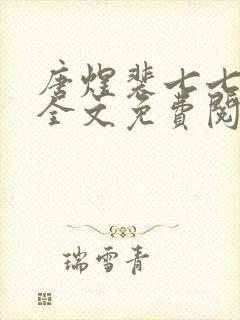 唐煌裴七七
全文免费阅
瑞雪青